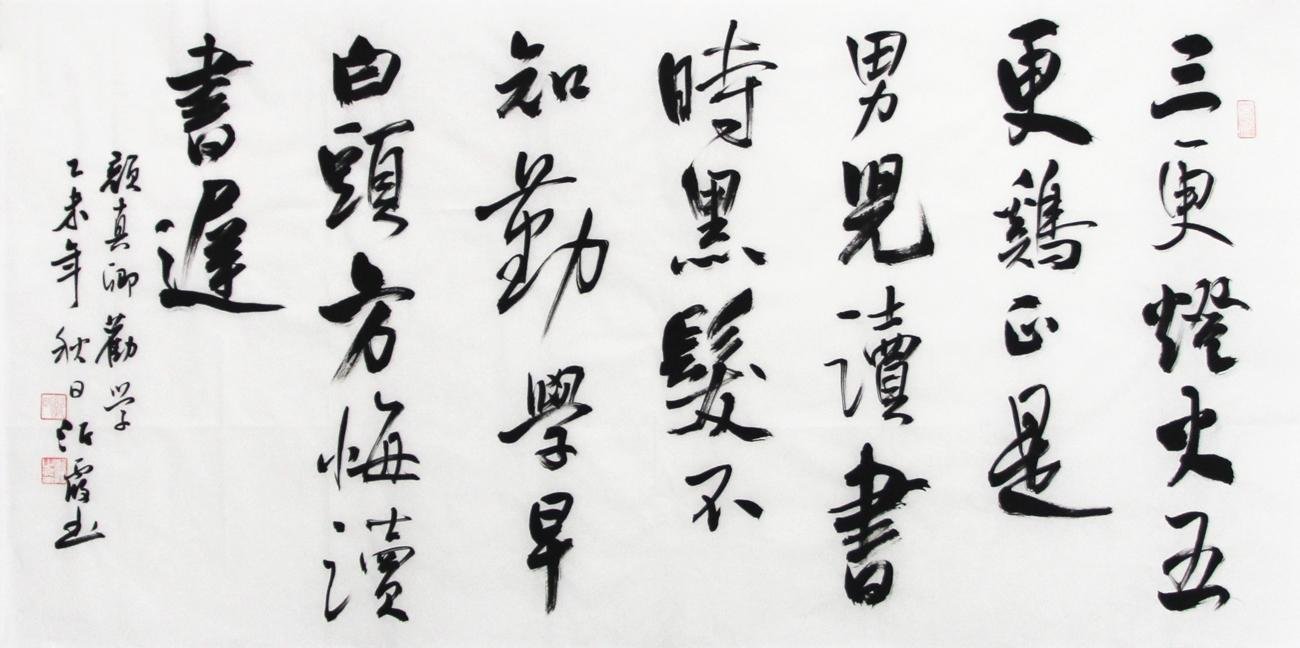 三更燈火五
更鷄正是
男兒讀書
時黑髮不
知勤學早
白頭方悔讀
書遲
顔真卿勸学
乙未年秋日霞书